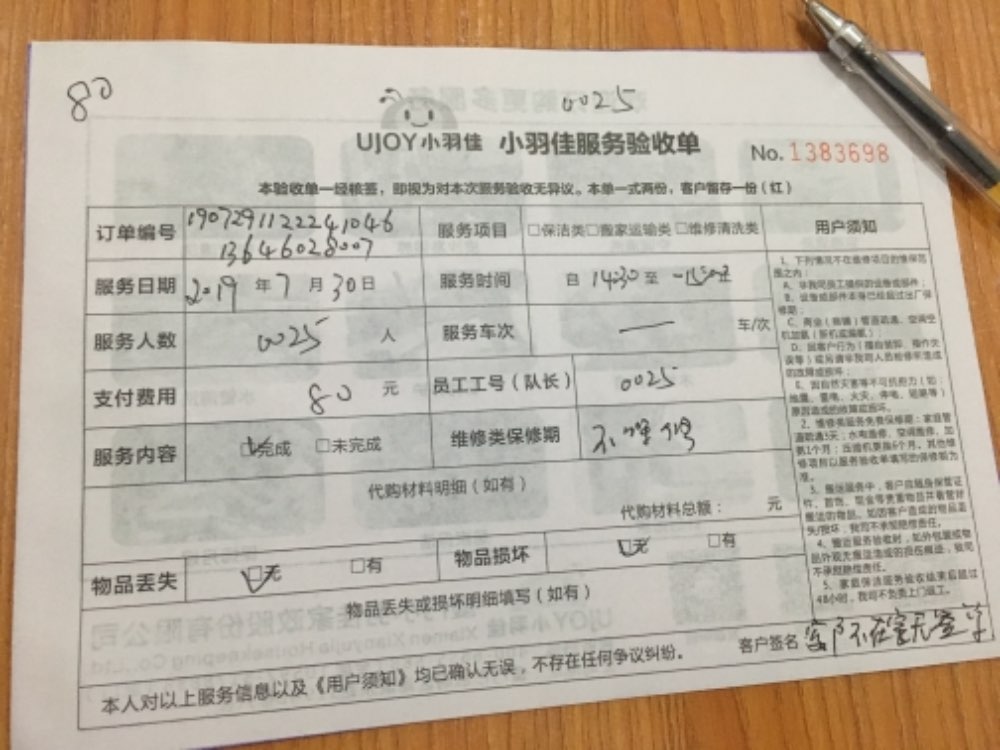 80
0025
UJOY小羽佳 小羽佳服务验收单
No. 1383698
本验收单一经核签，即视为对本次服务验收无异议。本单一式两份，客户留存一份（红）
订单编号 1907291122241046
13646028007
服务项目 □保洁类□搬家运输类□维修清洗类
服务日期 2019 年 7 月 30 日
服务时间 自 14:30 至
服务人数 0025 人
服务车次 — 车/次
支付费用 80 元
员工工号（队长） 0025
服务内容 ☑完成 □未完成
维修类保修期 不保修
代购材料明细（如有）
代购材料总额： 元
物品丢失 ☑无 □有
物品损坏 ☑无 □有
物品丢失或损坏明细填写（如有）
本人对以上服务信息以及《用户须知》均已确认无误，不存在任何争议纠纷。
客户签名 客户不在家无签字
用户须知
1、下列情况不在维修项目的维保范
围之内：
A、非我司员工提供的设备或部件；
B、设备或部件本身已经超过出厂保
修期；
C、商业（商铺）管道疏通、空调空
机加氨（拆机或漏氨）；
D、因客户行为（擅自装卸、操作失
误等）或另请非我司人员检修所造成
的故障或损坏；
E、因自然灾害等不可抗拒力（如：
地震、雷电、火灾、停电、短路等）
原因造成的故障或损坏。
2、维修类服务免费保修期：家庭管
道疏通3天；水电维修、空调维修、加
氨1个月；压缩机更换6个月。其他维
修项目以服务验收单填写的保修期为
准。
3、搬运服务中，客户应随身保管证
件、首饰、现金等贵重物品并看管好
搬运的物品。如因客户造成的物品丢
失/损坏，我司不承担赔偿责任。
4、搬运服务验收时，如外包装或物
品外观无搬运造成的损伤痕迹，我司
不承担赔偿责任。
5、家庭保洁服务验收结束后超过
48小时，我司不负责上门返工。